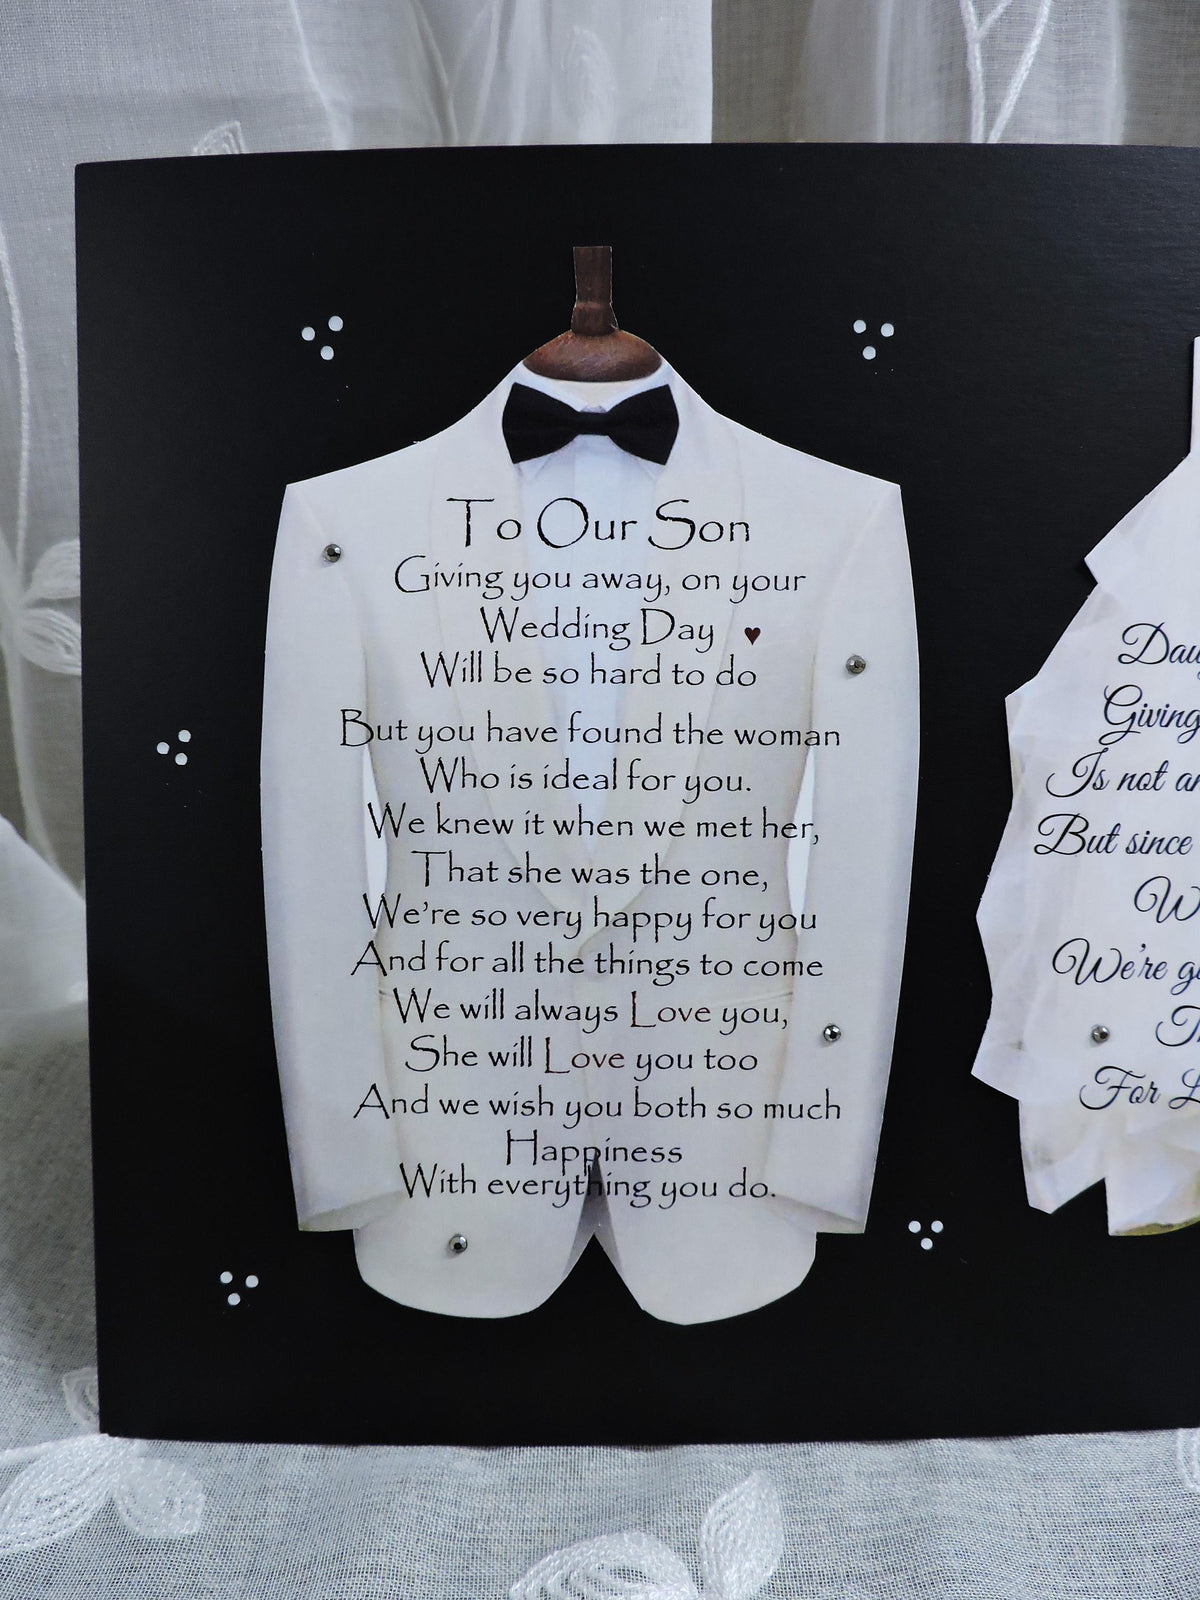 To Our Son
Giving you away, on your
Wedding Day
Will be so hard to do
But you have found the woman
Who is ideal for you.
We knew it when we met her,
That she was the one,
We're so very happy for you
And for all the things to come
We will always Love you,
She will Love you too
And we wish you both so much
Happiness
With everything you do.
Giving
Is not
But since
We're
For